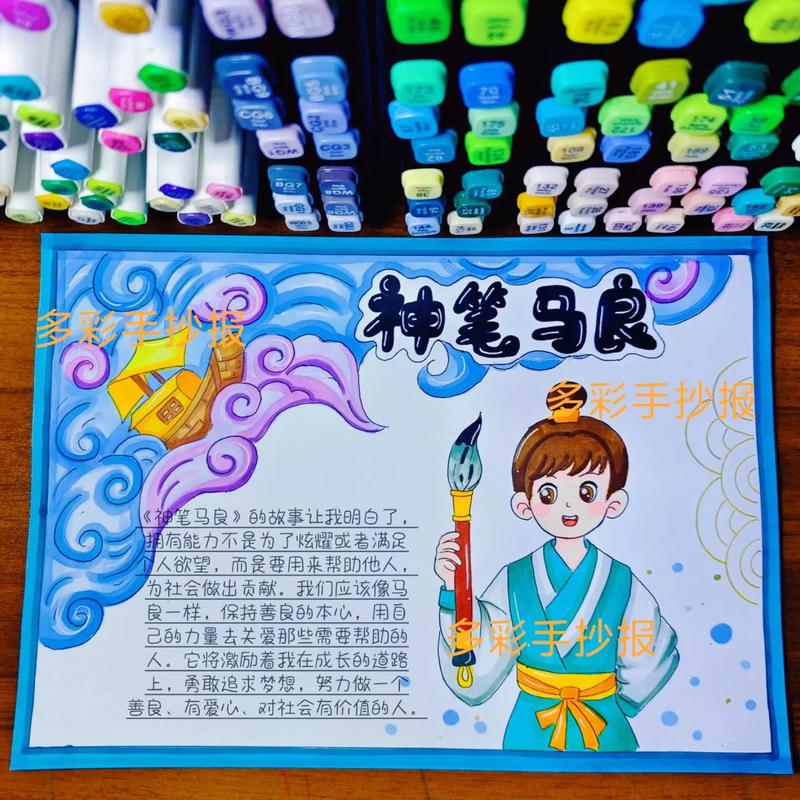 173
70
CG6
CG2
175
62
CG3
WG1
109
169
174
BG7
132
139
WG0.5
144
多彩手抄报
神笔马良
多彩手抄报
《神笔马良》的故事让我明白了，
拥有能力不是为了炫耀或者满足
个人欲望，而是要用来帮助他人，
为社会做出贡献。我们应该像马
良一样，保持善良的本心，用自
己的力量去关爱那些需要帮助的
人。它将激励着我在成长的道路
上，勇敢追求梦想，努力做一个
善良、有爱心、对社会有价值的人。
多彩手抄报